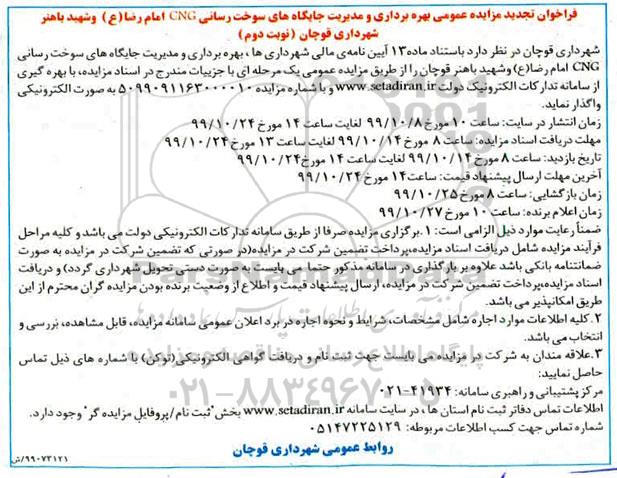 فراخوان تجدید مزایده عمومی بهره برداری و مدیریت جایگاه های سوخت رسانی CNG امام رضا(ع) وشهید باهنر
شهرداری قوچان (نوبت دوم)
شهرداری قوچان در نظر دارد باستناد ماده۱۳ آیین نامه‌ی مالی شهرداری ها، بهره برداری و مدیریت جایگاه های سوخت رسانی
CNG امام رضا(ع) وشهید باهنر قوچان را از طریق مزایده عمومی یک مرحله ای با جزییات مندرج در اسناد مزایده، با بهره گیری
از سامانه تدارکات الکترونیک دولت www.setadiran.ir و با شماره مزایده ۵۰۹۹۰۹۱۱۶۳۰۰۰۰۱۰ به صورت الکترونیکی
واگذار نماید.
زمان انتشار در سایت: ساعت ۱۰ مورخ ۹۹/۱۰/۸ لغایت ساعت ۱۴ مورخ ۹۹/۱۰/۲۴
مهلت دریافت اسناد مزایده: ساعت ۸ مورخ ۹۹/۱۰/۱۴ لغایت ساعت ۱۳ مورخ ۹۹/۱۰/۲۴
تاریخ بازدید: ساعت ۸ مورخ ۹۹/۱۰/۱۴ لغایت ساعت ۱۴ مورخ ۹۹/۱۰/۲۴
آخرین مهلت ارسال پیشنهاد قیمت: ساعت۱۴ مورخ ۹۹/۱۰/۲۴
زمان بازگشایی: ساعت ۸ مورخ ۹۹/۱۰/۲۵
زمان اعلام برنده: ساعت ۱۰ مورخ ۹۹/۱۰/۲۷
ضمناً رعایت موارد ذیل الزامی است: ۱.برگزاری مزایده صرفا از طریق سامانه تدارکات الکترونیکی دولت می باشد و کلیه مراحل
فرآیند مزایده شامل دریافت اسناد مزایده،پرداخت تضمین شرکت در مزایده(در صورتی که تضمین شرکت در مزایده به صورت
ضمانتنامه بانکی باشد علاوه بر بارگذاری در سامانه مذکور حتما می بایست به صورت دستی تحویل شهرداری گردد) و دریافت
اسناد مزایده،پرداخت تضمین شرکت در مزایده، ارسال پیشنهاد قیمت و اطلاع از وضعیت برنده بودن مزایده گران محترم از این
طریق امکانپذیر می باشد.
۲.کلیه اطلاعات موارد اجاره شامل مشخصات، شرایط و نحوه اجاره در برد اعلان عمومی سامانه مزایده، قابل مشاهده، بررسی و
انتخاب می باشد.
۳.علاقه مندان به شرکت در مزایده می بایست جهت ثبت نام و دریافت گواهی الکترونیکی(توکن) با شماره های ذیل تماس
حاصل نمایید:
مرکز پشتیبانی و راهبری سامانه: ۴۱۹۳۴-۰۲۱
اطلاعات تماس دفاتر ثبت نام استان ها، در سایت سامانه www.setadiran.ir بخش"ثبت نام/پروفایل مزایده گر" وجود دارد.
شماره تماس جهت کسب اطلاعات مربوطه: ۰۵۱۴۷۲۲۵۱۲۹
روابط عمومی شهرداری قوچان
۹۹۰۷۳۱۲۱/ش